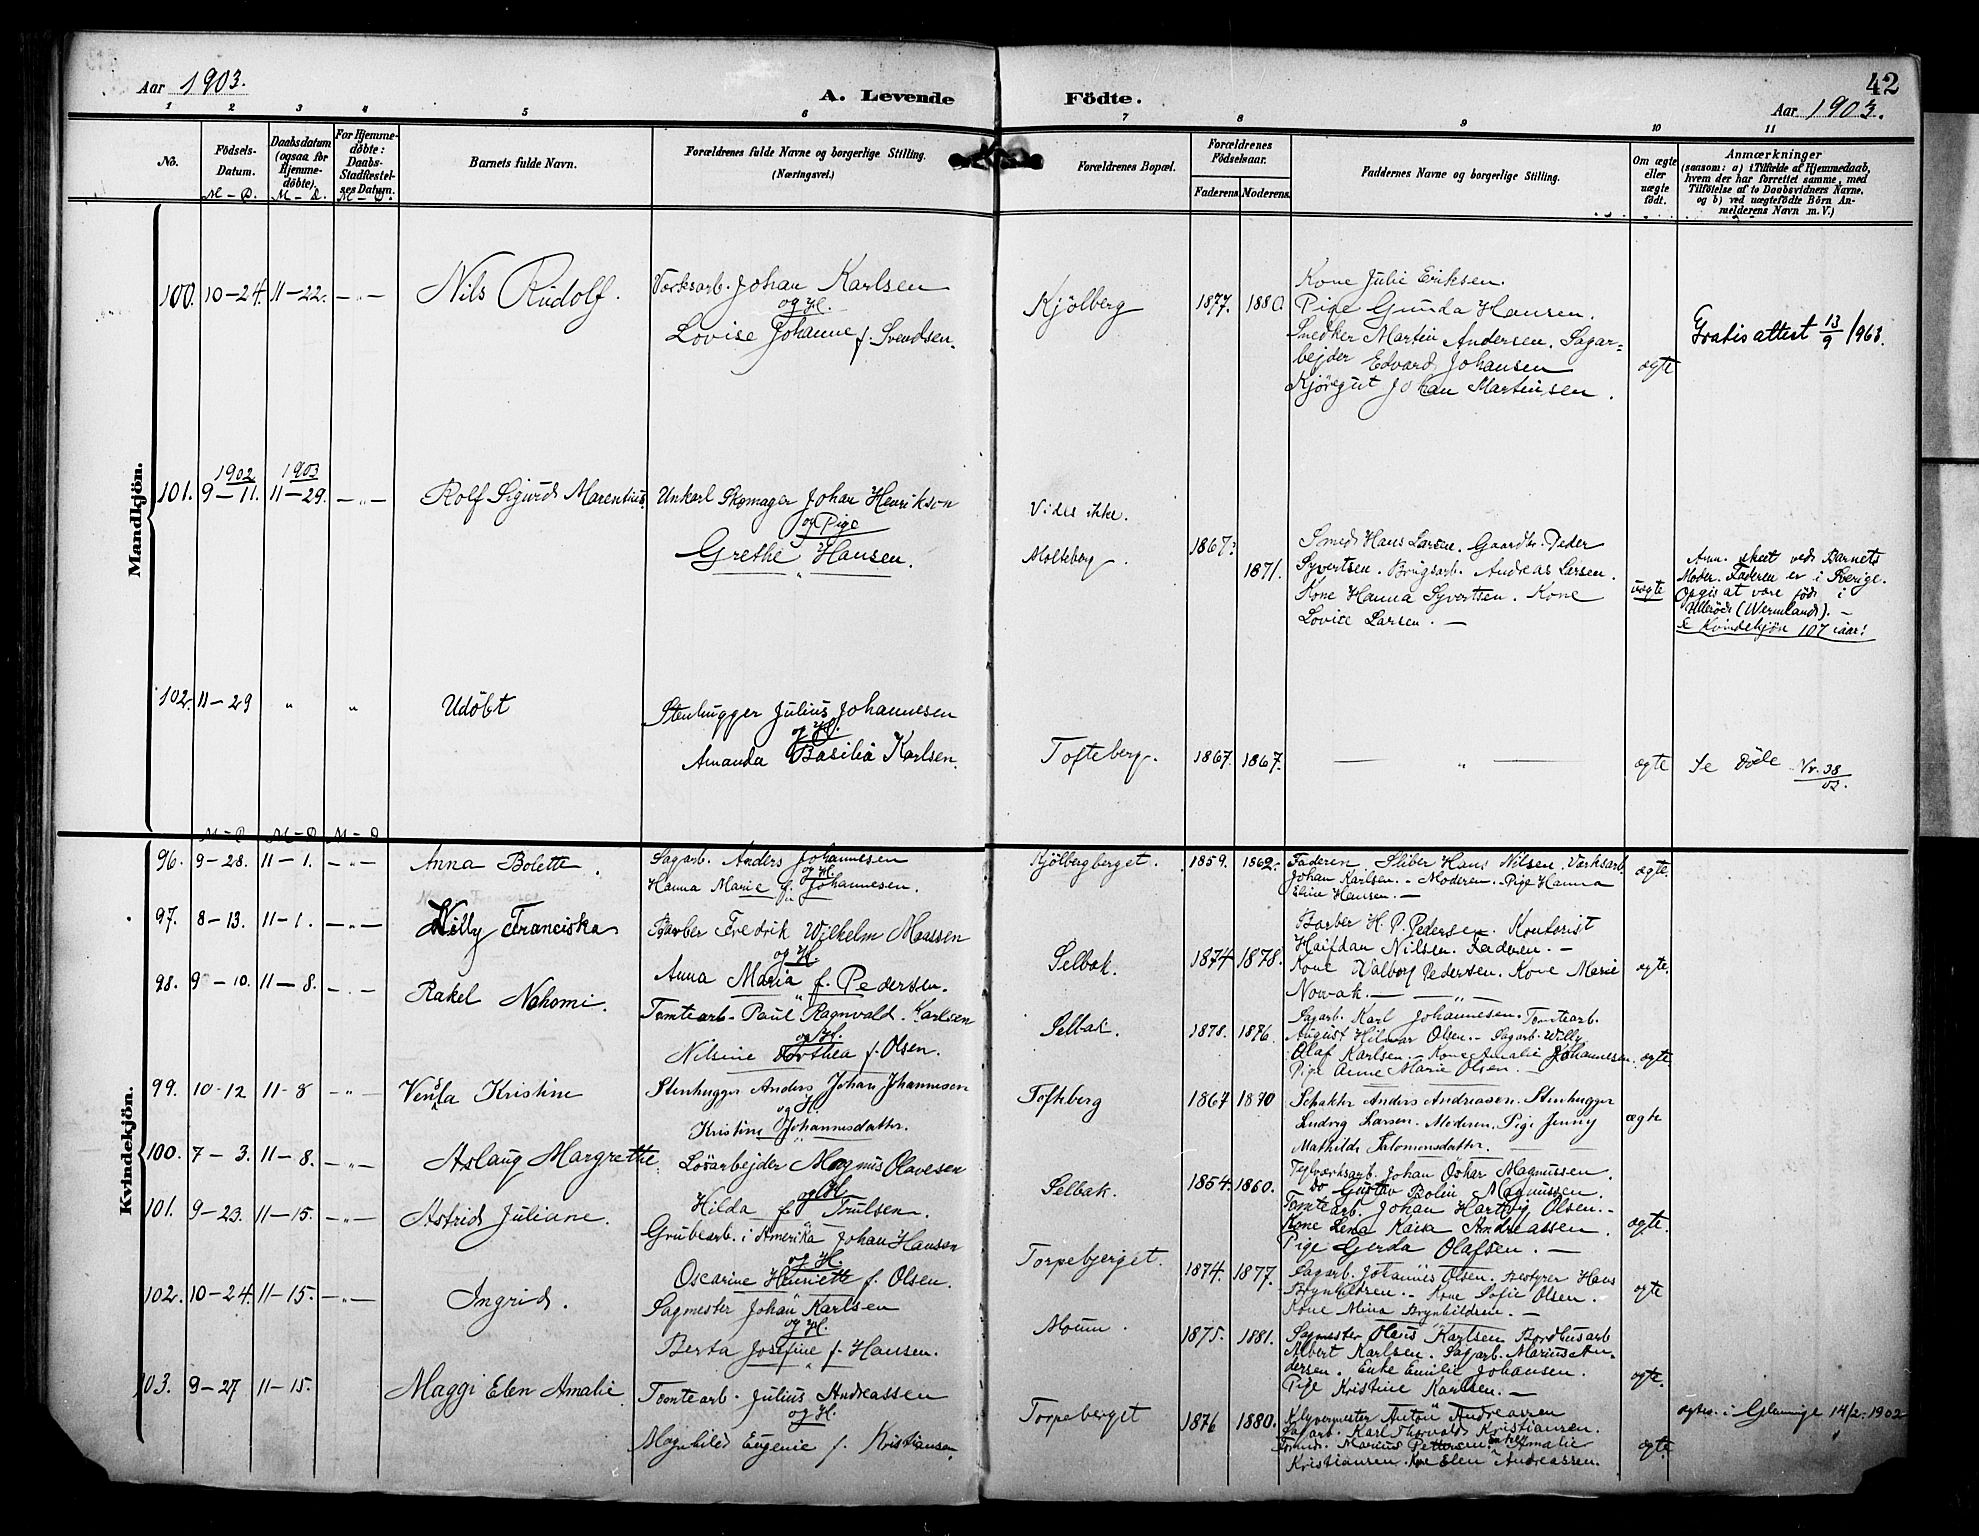 Aar 1903.
A. Levende Födte.
42
Aar 1903.
1 2 3 4 5 6 7 8 9 10 11
No.
Födsels-Datum.
M – D.
Daabsdatum (ogsaa for Hjemme-döbte).
M – D.
For Hjemme-döbte: Daabs-Stadfestel-ses Datum.
M – D.
Barnets fulde Navn.
Forældrenes fulde Navne og borgerlige Stilling.
(Næringsvei.)
Forældrenes Bopæl.
Forældrenes Födselsaar.
Faderens. Moderens.
Faddernes Navne og borgerlige Stilling.
Om ægte eller uægte födt.
Anmærkninger
(saasom: a) i Tilfælde af Hjemmedaab,
hvem der har forrettet samme, med
Tilföielse af to Daabsvidners Navne,
og b) ved uægtefödte Börn An-
melderens Navn m. V.)
Mandkjön.
100. 10–24. 11–22. – " – Nils Rudolf.
Verksarb. Johan Karlsen
og H.
Lovise Johanne f. Svendsen.
Kjölberg 1877. 1880.
Kone Julie Eriksen.
Pige Gunda Hansen.
Snedker Martin Andersen. Sagar-
bejder Edvard Johansen
Kjöregut Johan Martinsen.
ægte
Gratis attest 13/9 1963.
1902 1903
101. 9–11. 11–29. – " – Rolf Sigurd Marentius
Unkarl Skomager Johan Henrikson
og Pige
Grethe Hansen.
Vides ikke.
Molteberg. 1867? 1871.
Smed Hans Larsen. Gaardbr. Peder
Syvertsen. Brugsarb. Andreas Larsen.
Kone Hanna Syvertsen. Kone
Lovise Larsen. –
uægte
Anm. skeet ved Barnets
Moder. Faderen er i Sverige.
Opgis at være föd i
(Wermland). –
Se Kvindekjön 107 iaar!
102. 11–29 " " Udöbt
Stenhugger Julius Johannesen
og H.
Amanda Basilia Karlsen.
Tofteberg. 1867. 1867. – " – ægte
Se Döde Nr. 38/03.
M – D M – D M – D
Kvindekjön.
96. 9–28. 11–1. – " – Anna Bolette.
Sagarb. Anders Johannesen
og H.
Hanna Marie f. Johannesen.
Kjölbergberget. 1859. 1862.
Faderen. Sliber Hans Nilsen. Værksarb.
Johan Karlsen. – Moderen. – Pige Hanna
Eline Hansen. –
ægte.
97. 8–13. 11–1. – " – Willy Franciska
Barber Fredrik Wilhelm Maassen
og H.
Anna Maria f. Pedersen.
Selbak. 1874 1878.
Barber H. P. Pedersen. Kontorist
Halfdan Nilsen. Faderen. –
Kone Valborg Pedersen. Kone Marie
Nowak. –
ægte.
98. 9–10. 11–8. – " – Rakel Nahomi.
Tomtearb. Paul Ragnvald Karlsen
og H.
Nilsine Dorthea f. Olsen.
Selbak. 1878. 1876.
Sagarb. Karl Johannesen. Tomtearb.
August Hilmar Olsen. – Sagarb. Willy
Olaf Karlsen. – Kone Amalie Johannesen.
Pige Anne Marie Olsen. –
ægte.
99. 10–12 11–8 – " – Vensla Kristine
Stenhugger Anders Johan Johannesen
og H.
Kristine Johannesdatter.
Tofteberg 1867 1870
Anders Andreasen. Stenhugger
Ludvig Larsen. Moderen. Pige Jenny
Mathilde Salomonsdatter. –
ægte
100. 7–3. 11–8. – " – Aslaug Margrethe
Lösarbejder Magnus Olavesen
og H.
Hilda f. Trulsen.
Selbak. 1854. 1860.
Teglværksarb. Johan Oskar Magnussen.
do Gustav Bolin Magnussen.
Tomtearb. Johan Hartvig Olsen. –
Kone Lena Kaisa Andreassen.
Pige Gerda Olafsen. –
ægte.
101. 9–23. 11–15. – " – Astrid Juliane.
Grubearb. i Amerika Johan Hansen
og H.
Oscarine Henriette f. Olsen.
Torpebjerget. 1874. 1877.
Sagarb. Johannes Olsen. Bestyrer Hans
Brynhildsen. – Kone Sofie Olsen.
Kone Mina Brynhildsen. –
ægte
102. 10–24. 11–15. – " – Ingrid.
Sagmester Johan Karlsen
og H.
Berta Josefine f. Hansen.
Moum. 1875. 1881.
Sagmester Olaus Karlsen Bordhusarb
Albert Karlsen. Sagarb. Marius An-
dersen. Enke Emilie Johansen.
Pige Kristine Karlsen. –
ægte.
103. 9–27 11–15. Maggi Elen Amalie
Tomtearb. Julius Andreassen
og H.
Magnhild Eugenie f. Kristiansen.
Torpeberget 1876 1880.
Klyvermester Anton Andreassen
Sagarb. Karl Thorvald Kristiansen.
Marius Pettersen Enke Amalie
Kristiansen. Kone Elen Andreassen.
ægte.
i Glemmige 14/2-1902